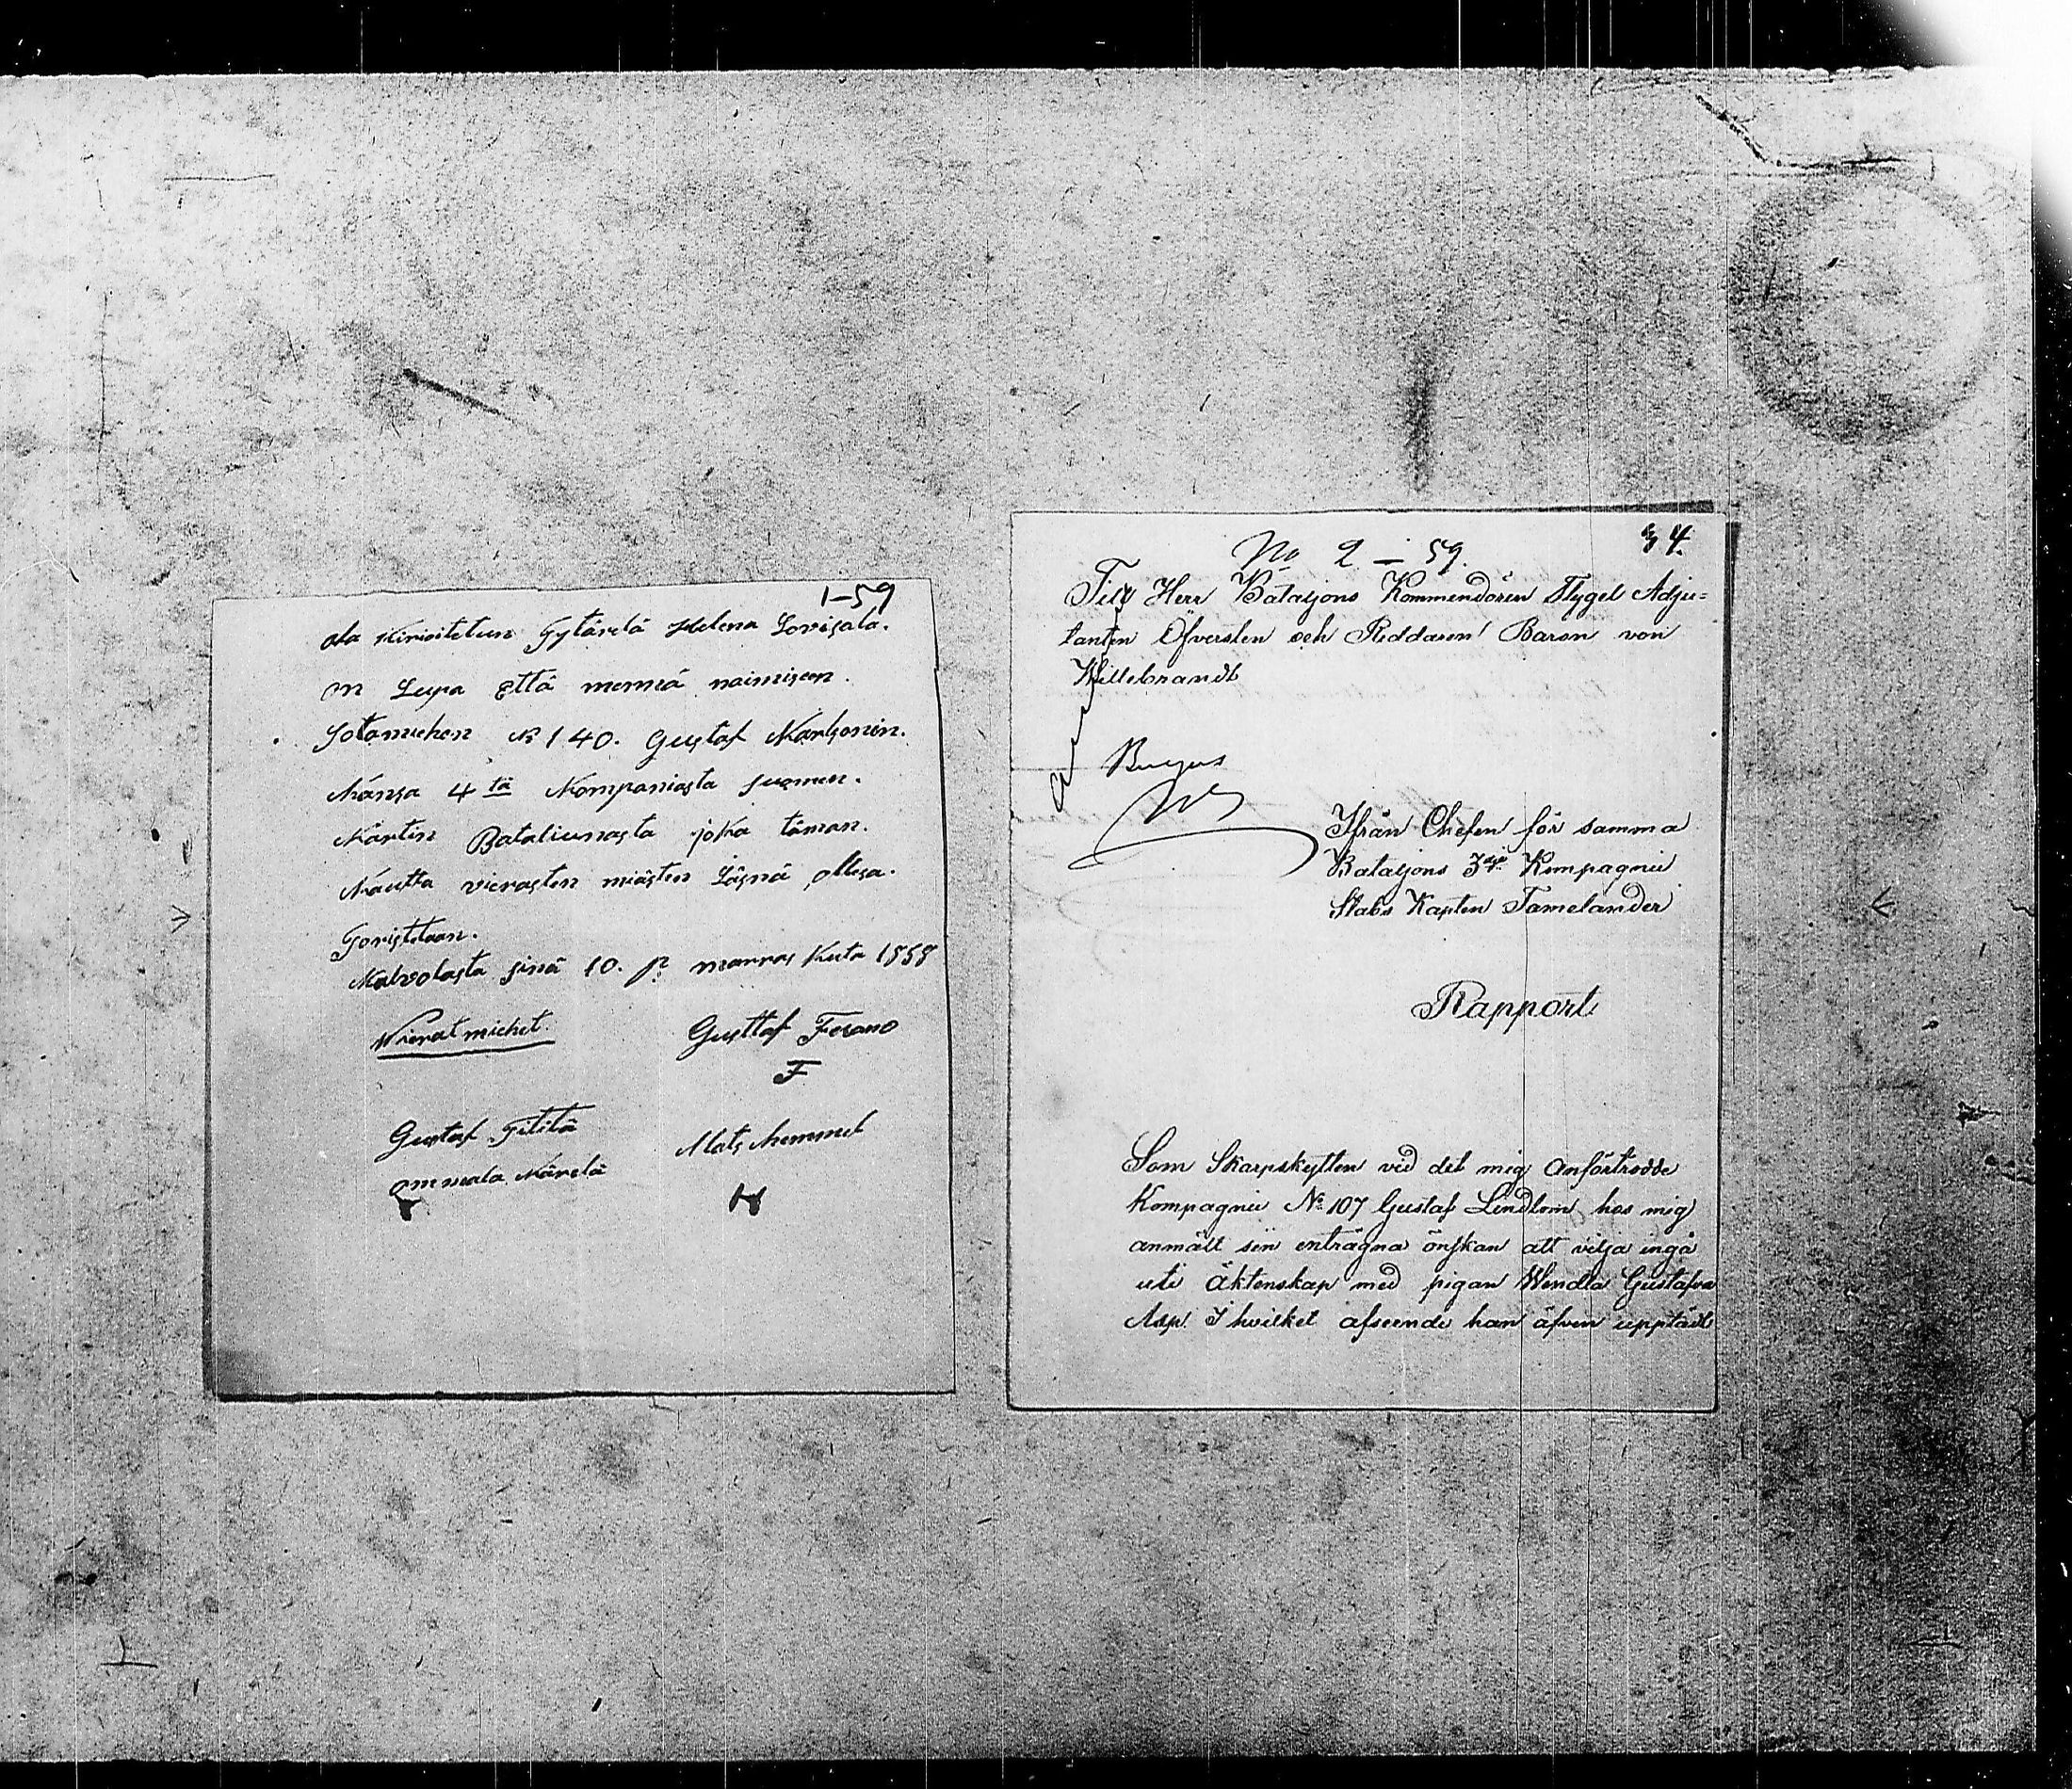 1-59
ala Kirioitetun Tytärelä Helena Lovisala.
on Lupa että mennä naimiseen.
Sotamiehen № 140. Gustaf Karlsonin.
Kansa 4tä Kompaniasta suomen.
Kaartin Bataliunasta joka täman.
Kautta vierasten miästen Läsnä ollesa.
Toristetaan.
Kalvolasta sinä 10. p. marras Kuta 1858
Vierat miehet.
Gusttaf Forano
F
Gustaf Titilä
Mats
ommala Kärelä
34.
No 2 - 59.
Till Herr Bataljons Kommendören Flygel Adju=
tanten Öfversten och Riddaren Baron von
Willebrandt
Ifrån Chefen för samma
Bataljons 3dje Kompagnie
Stabs Kapten Tamelander
Rapport
Som Skarpskytten vid det mig anförtrodde
Kompagnie No 107 Gustaf Lindlom hos mig
anmält sin enträgna önskan att vilja ingå
uti äktenskap med pigan Wendla Gustafva
Asp. I hvilket afseende han äfven